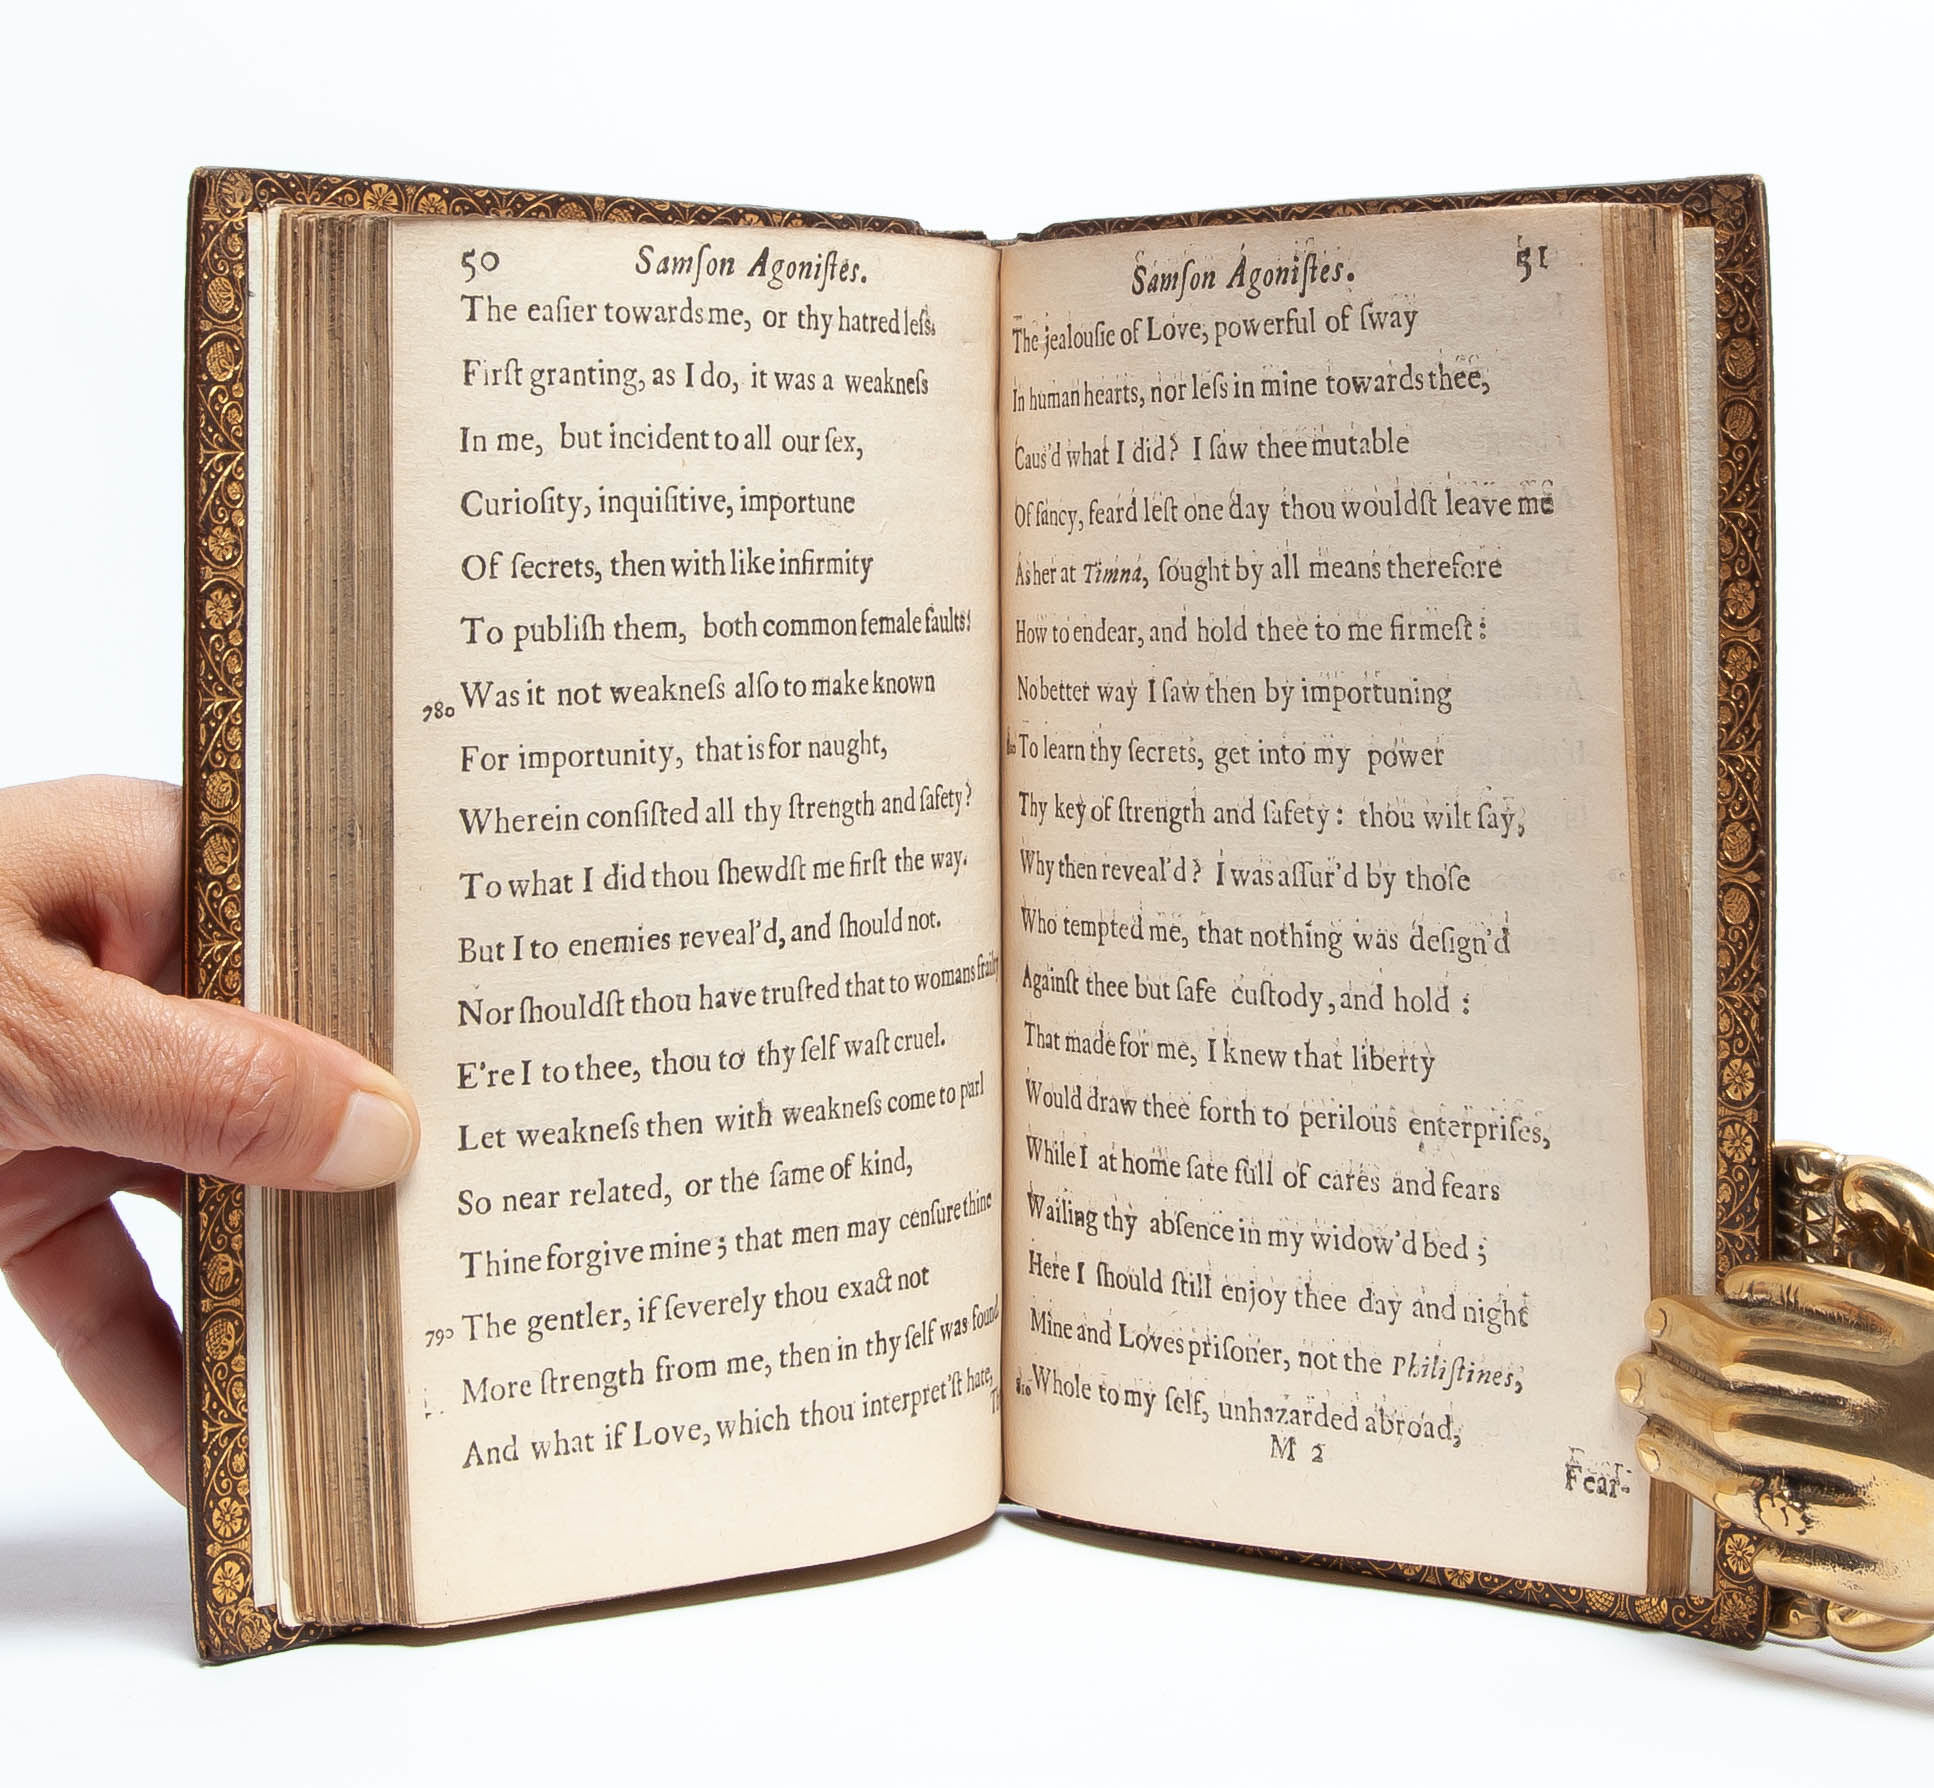 50 Samſon Agoniſtes.
The eaſier towards me, or thy hatred leſs.
Firſt granting, as I do, it was a weakneſs
In me, but incident to all our ſex,
Curioſity, inquiſitive, importune
Of ſecrets, then with like infirmity
To publiſh them, both common female faults:
780 Was it not weakneſs alſo to make known
For importunity, that is for naught,
Wherein conſiſted all thy ſtrength and ſafety?
To what I did thou ſhewdſt me firſt the way.
But I to enemies reveal'd, and ſhould not.
Nor ſhouldſt thou have truſted that to womans frailty
E're I to thee, thou to thy ſelf waſt cruel.
Let weakneſs then with weakneſs come to parl
So near related, or the ſame of kind,
Thine forgive mine; that men may cenſure thine
790 The gentler, if ſeverely thou exact not
More ſtrength from me, then in thy ſelf was found
And what if Love, which thou interpret'ſt hate,
Samſon Agoniſtes. 51
The jealouſie of Love, powerful of ſway
In human hearts, nor leſs in mine towards thee,
Caus'd what I did? I ſaw thee mutable
Of fancy, feard leſt one day thou wouldſt leave me
As her at Timna, ſought by all means therefore
How to endear, and hold thee to me firmeſt:
No better way I ſaw then by importuning
800 To learn thy ſecrets, get into my power
Thy key of ſtrength and ſafety: thou wilt ſay,
Why then reveal'd? I was aſſur'd by thoſe
Who tempted me, that nothing was deſign'd
Againſt thee but ſafe cuſtody, and hold:
That made for me, I knew that liberty
Would draw thee forth to perilous enterpriſes,
While I at home ſate full of cares and fears
Wailing thy abſence in my widow'd bed;
Here I ſhould ſtill enjoy thee day and night
Mine and Loves priſoner, not the Philiſtines,
810 Whole to my ſelf, unhazarded abroad,
M 2
Fear-